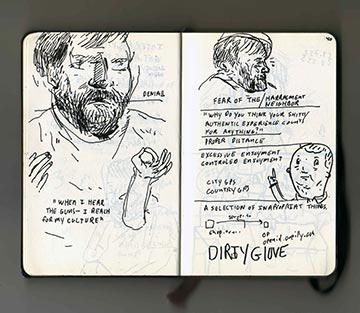 DENIAL
"WHEN I HEAR
THE GUNS - I REACH
FOR MY CULTURE"
FEAR OF THE HARRASMENT
NEIGHBOR
"WHY DO YOU THINK YOUR SHITTY
AUTHENTIC EXPERIENCE COUNTS
FOR ANYTHING?"
PROPER DISTANCE
EXCESSIVE ENJOYMENT
CONTROLED ENJOYMENT?
CITY GPS
COUNTRY GPS
A SELECTION OF INAPROPRIAT THINGS.
DIRTY GLOVE